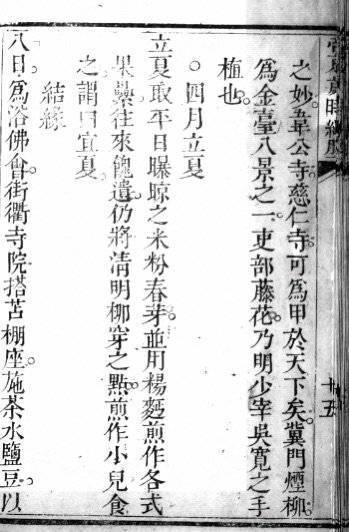 帝京歲時紀勝
十五
之妙。韋公寺。慈仁寺。可為甲於天下矣。冀門煙柳。
為金臺八景之一。吏部藤花。乃明少宰吳寬之手
植也。
○四月立夏
立夏取平日曝晾之米粉春芽。並用糖麵煎作各式
果疊。往來餽遺。仍將清明柳穿之點。煎作小兒食
之。謂曰宜夏。
結緣
八日為浴佛會。街衢寺院搭苫棚座。施茶水鹽豆。以